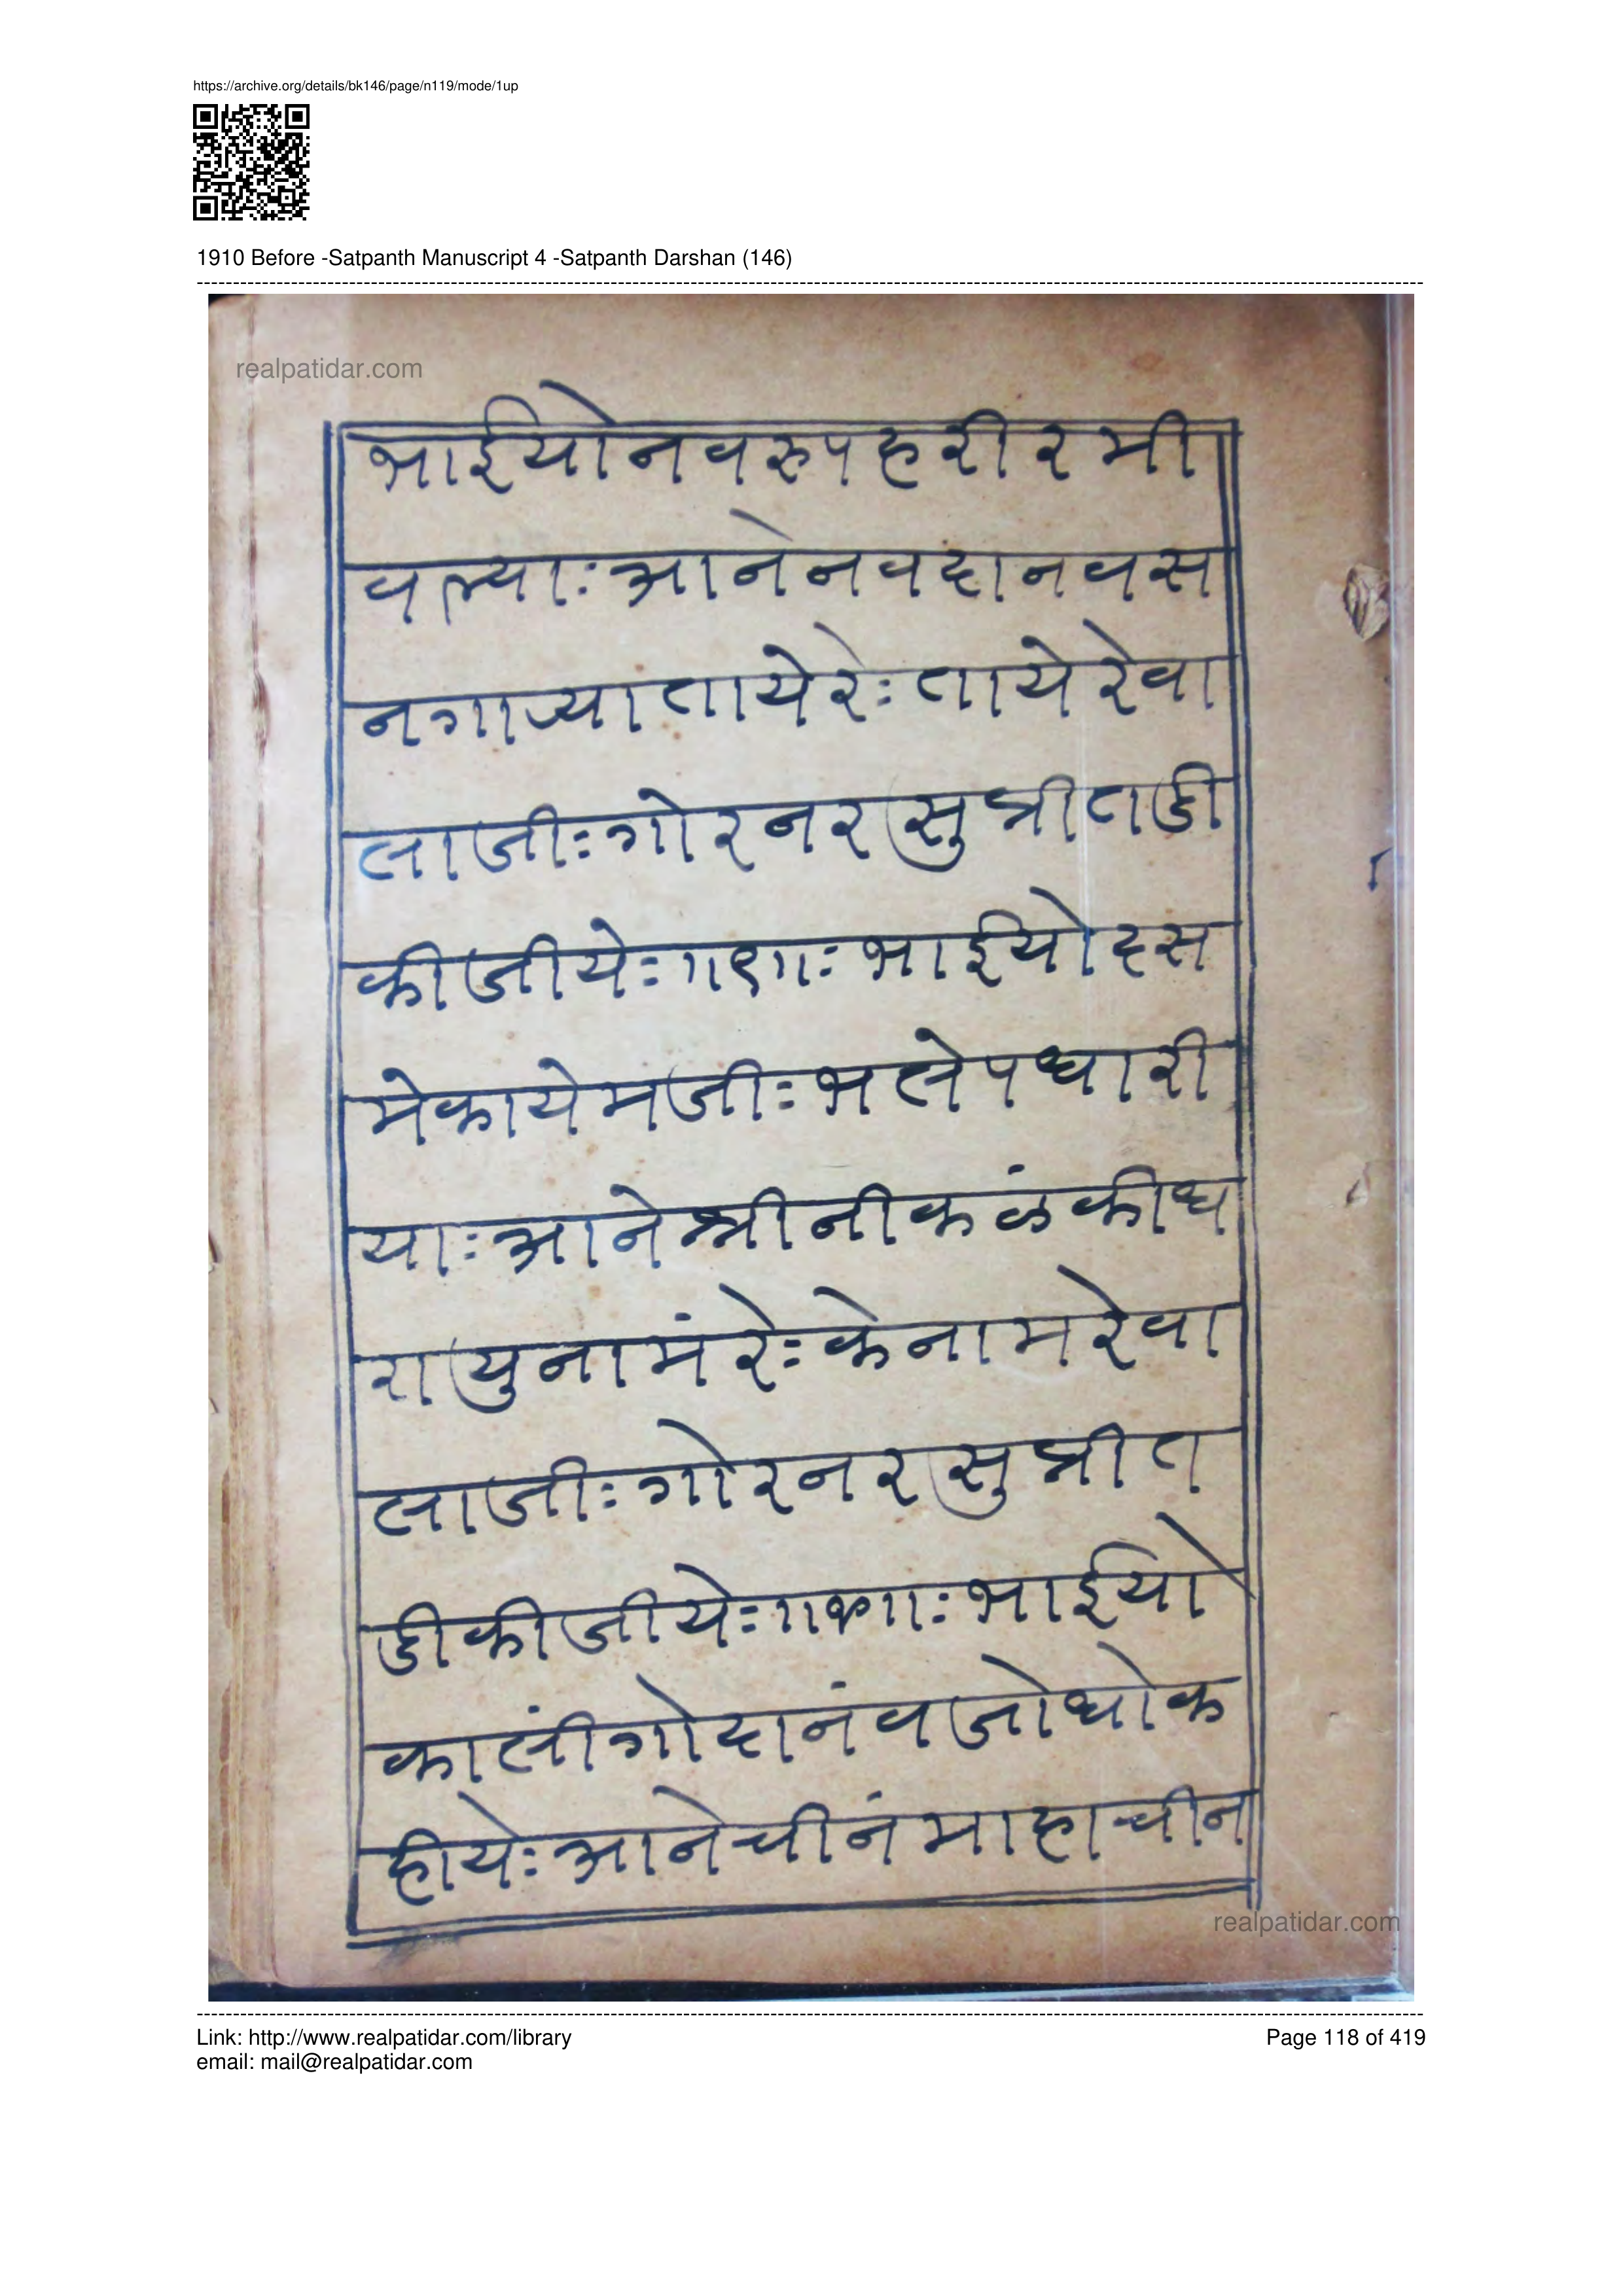 https://archive.org/details/bk146/page/n119/mode/1up
1910 Before -Satpanth Manuscript 4 -Satpanth Darshan (146)
realpatidar.com
भाईयो नव रुप हरी रमी
वल्याः आने नव दानव स
नगाज्या ताये रेः ताये रे वा
लाजीः गोर नर सु प्रीतडी
कीजीयेः ॥९॥ः भाईयो दस
मे काये मजीः भले पधारी
याः आने श्री नीकळंकी ध
रायु नामं रेः के नाम रे वा
लाजीः गोर नर सु प्रीत
डी कीजीयेः भाईयो
कालींगो दानंव जोधो क
हीयेः आने चीनं माहाचीन
realpatidar.com
Link: http://www.realpatidar.com/library
Page 118 of 419
email: mail@realpatidar.com